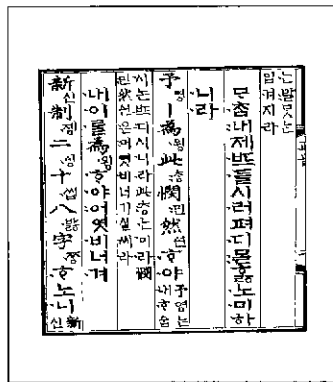 ᄂᆞᆫ말ᄆᆞᆺᄂᆞᆫ
입겨지라
ᄆᆞᄎᆞᆷ내제ᄠᅳ들시러펴디몯ᄒᆞᇙ노미하
니라
予영ㅣ為윙此ᄎᆞᆼ憫민然ᅀᅧᆫᄒᆞ야予영ᄂᆞᆫ내ᄒᆞᅀᆞᆸ
시논ᄠᅳ디시니라此ᄎᆞᆼᄂᆞᆫ이라憫
민然ᅀᅧᆫ은어엿비너기실씨라
내이ᄅᆞᆯ為윙ᄒᆞ야어엿비너겨
新신制졩二ᅀᅵᆼ十씹八바ᇙ字ᄍᆞᆼᄒᆞ노니新신